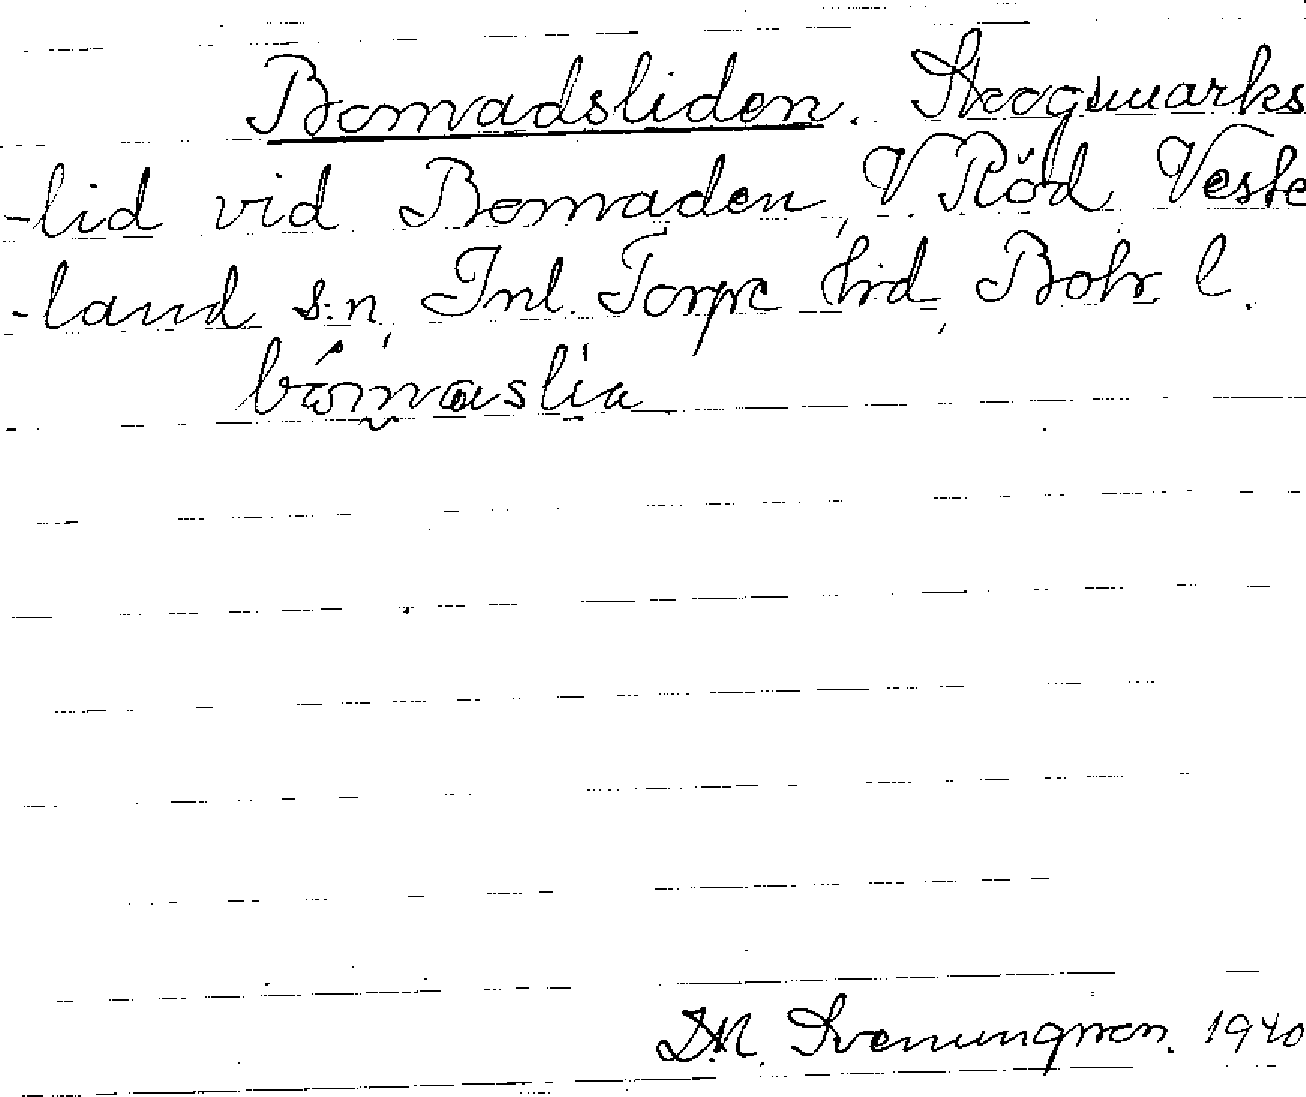 Bomadsliden. Skogsmarks
-lid vid Bomaden, V Röd, Veste
-land s:n, Inl. Torpe hrd, Bohr l.
D.M. Svenungsson. 1940